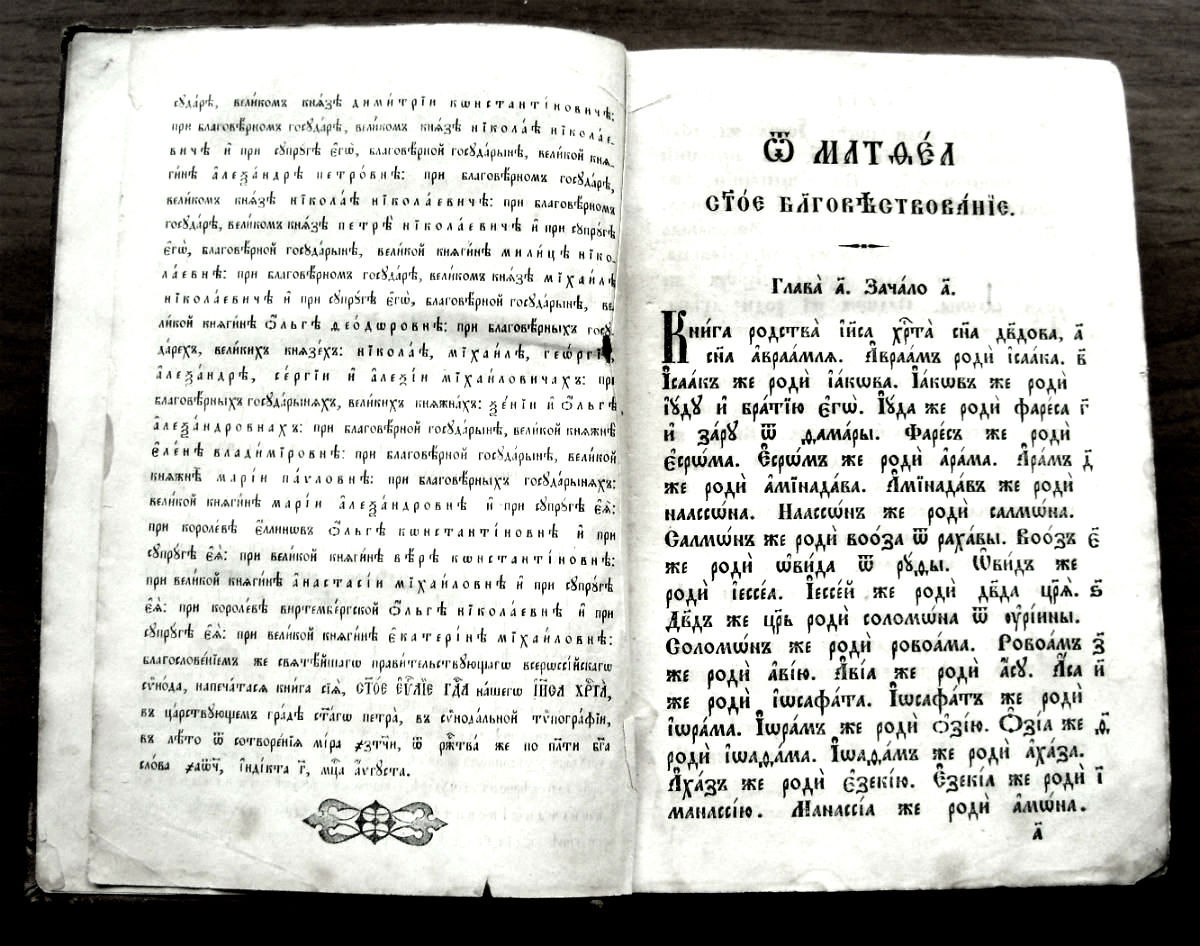 сꙋда́рѣ, вели́комъ кнѧ́зѣ димѝтрїи кѡнстанті́новичѣ:
при благовѣ́рномъ госꙋда́рѣ, вели́комъ кнѧ́зѣ нїкола́ѣ нїкола́е-
вичѣ и҆ при сꙋпрꙋ́гѣ є҆гѡ̀, благовѣ́рной госꙋда́рынѣ, вели́кой кнѧ-
ги́нѣ а҆леѯа́ндрѣ петро́внѣ: при благовѣ́рномъ госꙋда́рѣ,
вели́комъ кнѧ́зѣ нїкола́ѣ нїкола́евичѣ: при благовѣ́рномъ
госꙋда́рѣ, вели́комъ кнѧ́зѣ петрѣ̀ нїкола́евичѣ и҆ при сꙋпрꙋ́гѣ
є҆гѡ̀, благовѣ́рной госꙋда́рынѣ, вели́кой кнѧги́нѣ мили́цѣ нїко-
ла́евнѣ: при благовѣ́рномъ госꙋда́рѣ, вели́комъ кнѧ́зѣ мїхаи́лѣ
нїкола́евичѣ и҆ при сꙋпрꙋ́гѣ є҆гѡ̀, благовѣ́рной госꙋда́рынѣ, ве-
ли́кой кнѧги́нѣ Ѻ҆́льгѣ ѳео́дѡровнѣ: при благовѣ́рныхъ госꙋ-
да́рехъ, вели́кихъ кнѧзе́хъ: нїкола́ѣ, мїхаи́лѣ, гео́ргїи,
а҆леѯа́ндрѣ, се́ргїи и҆ а҆леѯі́и мїха́иловичахъ: при
благовѣ́рныхъ госꙋда́рынѧхъ, вели́кихъ кнѧжна́хъ: ѯе́нїи и҆ Ѻ҆́льгѣ
а҆леѯа́ндровнахъ: при благовѣ́рной госꙋда́рынѣ, вели́кой кнѧжнѣ̀
є҆ле́нѣ влади́мїровнѣ: при благовѣ́рной госꙋда́рынѣ, вели́кой
кнѧжнѣ̀ марі́и па́ѵловнѣ: при благовѣ́рныхъ госꙋда́рынѧхъ:
вели́кой кнѧги́нѣ марі́и а҆леѯа́ндровнѣ и҆ при сꙋпрꙋ́гѣ є҆ѧ̀:
при короле́вѣ є҆́ллинѡвъ Ѻ҆́льгѣ кѡнстанті́новнѣ и҆ при
сꙋпрꙋ́гѣ є҆ѧ̀: при вели́кой кнѧги́нѣ вѣ́рѣ кѡнстанті́новнѣ:
при вели́кой кнѧги́нѣ а҆настасі́и мїха́иловнѣ и҆ при сꙋпрꙋ́гѣ
є҆ѧ̀: при короле́вѣ виртембе́ргской Ѻ҆́льгѣ нїкола́евнѣ и҆ при
сꙋпрꙋ́гѣ є҆ѧ̀: при вели́кой кнѧги́нѣ є҆катері́нѣ мїха́иловнѣ:
благослове́нїемъ же свѧтѣ́йшагѡ прави́тельствꙋющагѡ всерѡссі́йскагѡ
сѷно́да, напеча́тасѧ кни́га сїѧ̀, ст҃о́е є҆ѵⷢ҇лїе гдⷭ҇а на́шегѡ і҆и҃са хрⷭ҇та̀,
въ ца́рствꙋющемъ гра́дѣ ст҃а́гѡ петра̀, въ сѷнода́льной тѷпогра́фїи,
въ лѣ́то ѿ сотворе́нїѧ мі́ра ҂зтч҃и, ѿ ржⷭ҇тва́ же по пло́ти бг҃а
сло́ва ҂аѿч҃, і҆ндї́кта г҃, мцⷭ҇а а҆́ѵгꙋста.
Ѿ МАТѲЕ́А
СТ҃О́Е БЛАГОВѢСТВОВА́НІЕ.
Глава̀ а҃. Зача́ло а҃.
Кни́га родства̀ і҆и҃са хрⷭ҇та̀ сн҃а дв҃дова, а҃
сн҃а а҆враа́млѧ. А҆враа́мъ родѝ і҆саа́ка. в҃
І҆саа́къ же родѝ і҆а́кѡва. І҆а́кѡвъ же родѝ
і҆ꙋ́дꙋ и҆ бра́тїю є҆гѡ̀. І҆ꙋ́да же родѝ фаре́са г҃
и҆ за́рꙋ ѿ ѳама́ры. Фаре́съ же родѝ
є҆срѡ́ма. Є҆срѡ́мъ же родѝ а҆ра́ма. А҆ра́мъ д҃
же родѝ а҆мїнада́ва. А҆мїнада́въ же родѝ
наассѡ́на. Наассѡ́нъ же родѝ салмѡ́на.
Салмѡ́нъ же родѝ воо́за ѿ раха́вы. Воо́зъ є҃
же родѝ ѡ҆ви́да ѿ рꙋ́ѳы. Ѡ҆ви́дъ же
родѝ і҆ессе́а. І҆ессе́й же родѝ дв҃да цр҃ѧ̀. ѕ҃
Дв҃дъ же цр҃ь родѝ соломѡ́на ѿ ᲂу҆рі́ины.
Соломѡ́нъ же родѝ ровоа́ма. Ровоа́мъ з҃
же родѝ а҆ві́ю. А҆ві́а же родѝ а҆́сꙋ. А҆́са и҃
же родѝ і҆ѡсафа́та. І҆ѡсафа́тъ же родѝ
і҆ѡра́ма. І҆ѡра́мъ же родѝ ѻ҆зі́ю. Ѻ҆зі́а же ѳ҃
родѝ і҆ѡаѳа́ма. І҆ѡаѳа́мъ же родѝ а҆ха́за.
А҆ха́зъ же родѝ є҆зекі́ю. Є҆зекі́а же родѝ і҃
манассі́ю. Манассі́а же родѝ а҆мѡ́на.
а҃